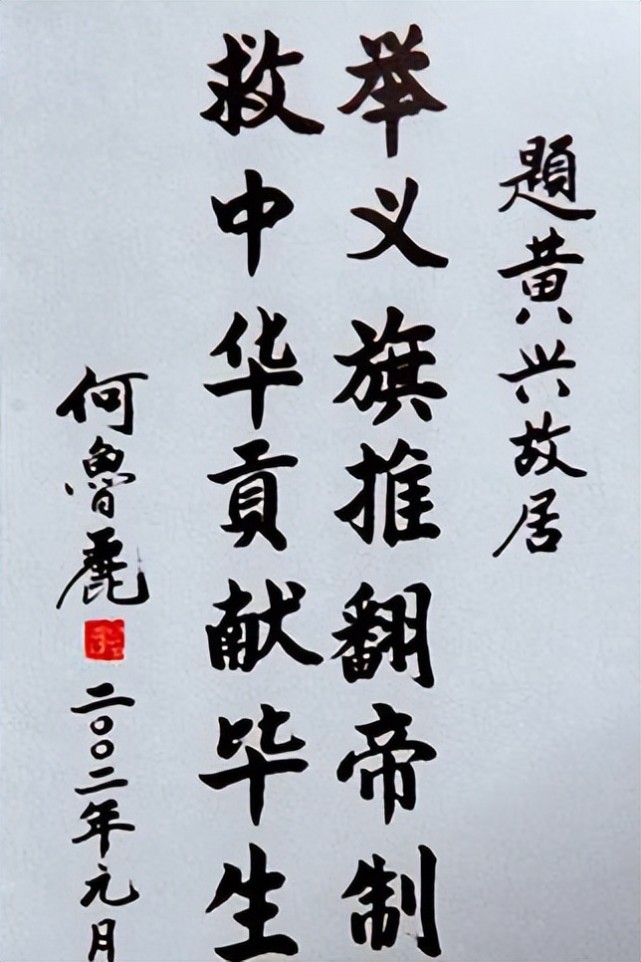 題黄兴故居
举义旗推翻帝制
救中华贡献毕生
何魯麗
二〇〇二年元月